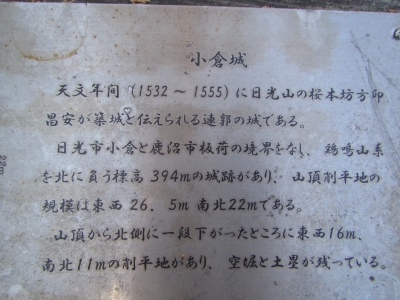 小倉城
天文年间 (1532 ~ 1555) に日光山の桜本坊方印
昌安が築城と伝えられる連郭の城である。
日光市小倉と鹿沼市板荷の境界をなし、鶏鳴山系
を北に負う標高 394mの城跡があり、山頂削平地の
規模は東西 26. 5m 南北22mである。
山頂から北側に一段下がったところに東西16m、
南北11mの削平地があり、空堀と土塁が残っている。
22m